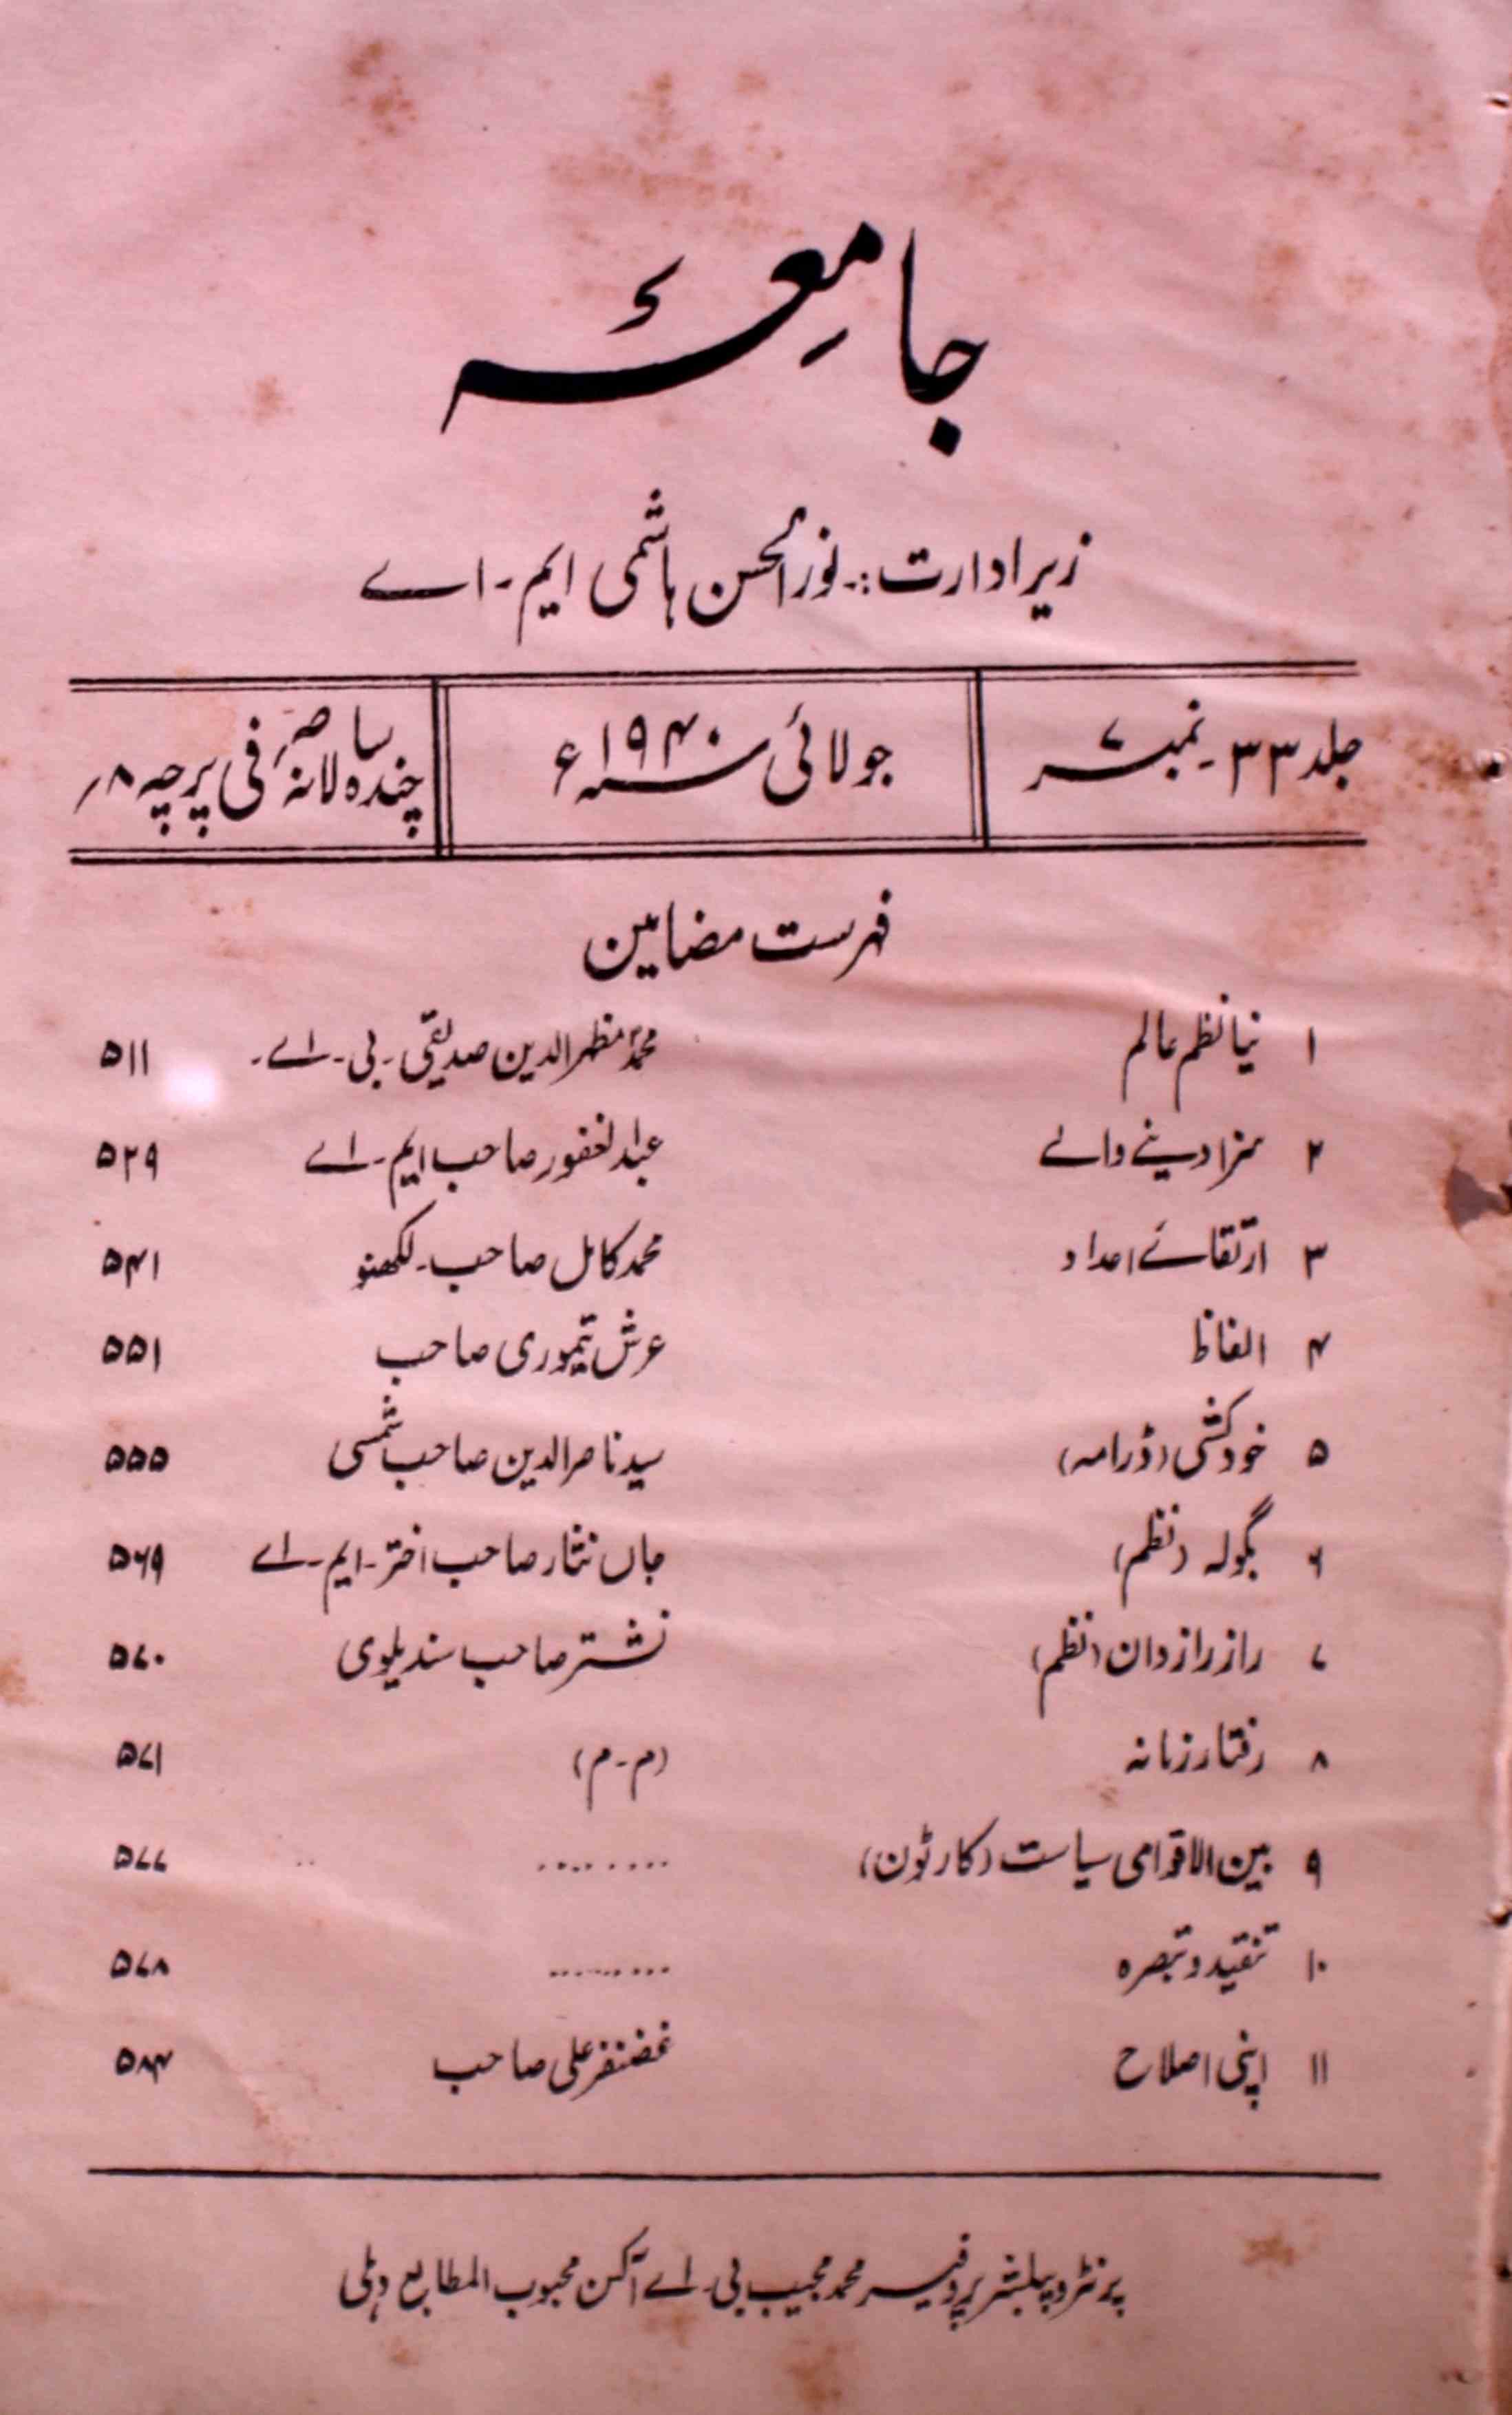 جامعہ
زیر ادارت :۔ نور الحسن ہاشمی ایم ۔ اے
جلد ۳۳ ۔ نمبر ۷
جولائی ۱۹۴۰ء
چندہ سالانہ صہ فی پرچہ ۸؍
فہرست مضامین
۱ نیا نظم عالم محمد مظہر الدین صدیقی ۔ بی ۔ اے ۔ ۵۱۱
۲ سزا دینے والے عبد الغفور صاحب ایم ۔ اے ۵۲۹
۳ ارتقائے اعداد محمد کامل صاحب ۔ لکھنو ۵۴۱
۴ الفاظ عرش تیموری صاحب ۵۵۱
۵ خودکشی (ڈرامہ) سید ناصر الدین صاحب شمسی ۵۵۵
۶ بگولہ (نظم) جاں نثار صاحب اختر ۔ ایم ۔ اے ۵۶۹
۷ راز رازدان (نظم) نشتر صاحب سندیلوی ۵۷۰
۸ رفتار زمانہ (م ۔ م) ۵۷۱
۹ بین الاقوامی سیاست (کارٹون) ........ ۵۷۷
۱۰ تنقید و تبصرہ ......... ۵۷۸
۱۱ اپنی اصلاح غضنفر علی صاحب ۵۸۴
پرنٹر و پبلشر پروفیسر محمد مجیب بی ۔ اے آکسن محبوب المطابع دہلی